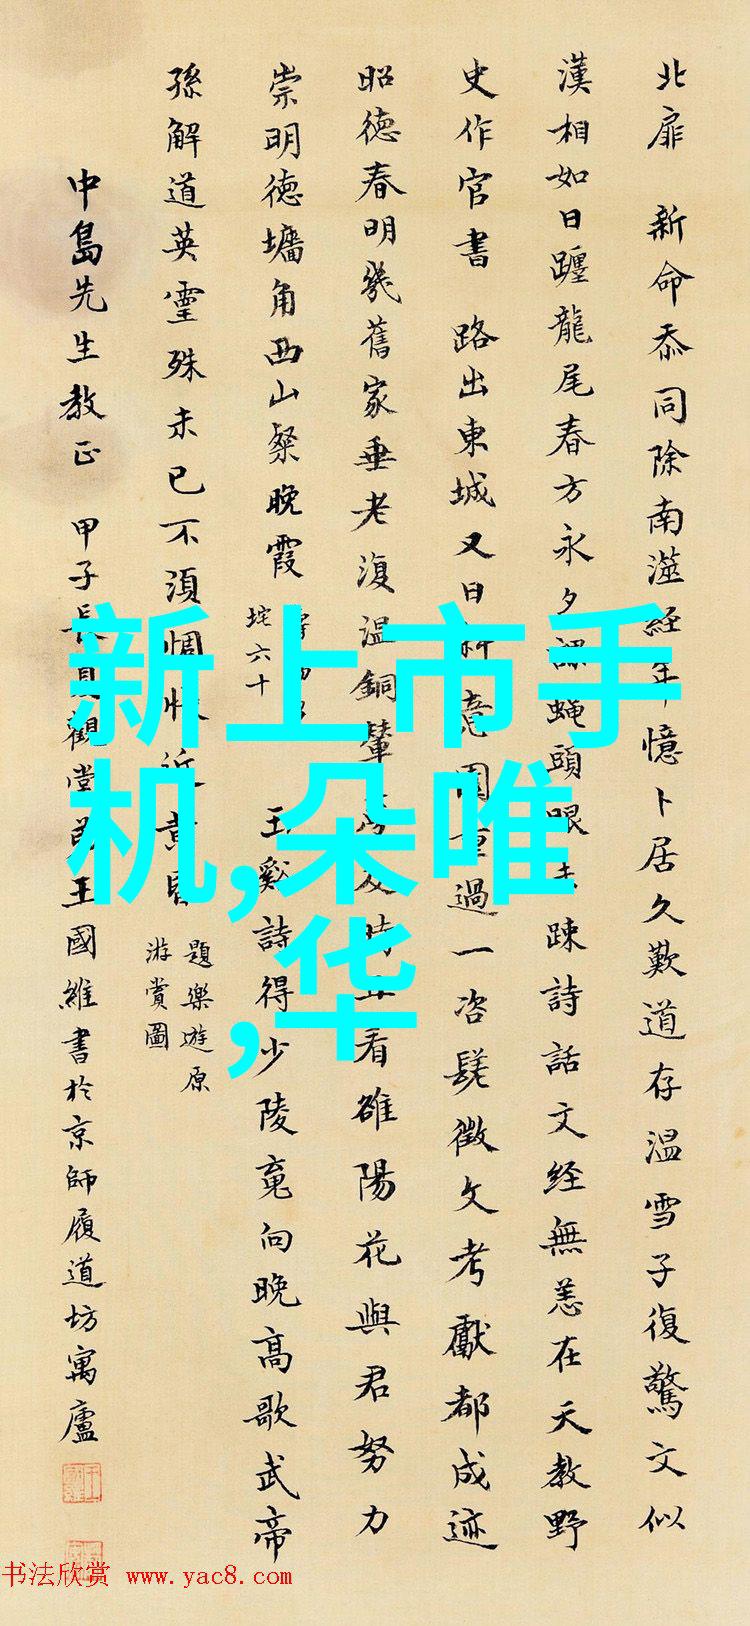 北扉　新命忝同除南澨經年憶卜居久歎道存温雪子復驚文似
漢相如日躔龍尾春方永夕蠅頭眼未疎詩話文経無恙在天教野
史作官書　路出東城又日斜意園重過一咨髦徵文考獻都成迹
昭德春明幾舊家垂老復温銅輦看雒陽花與君努力
崇明德墻角西山粲晚霞
垞六十
玉谿詩得少陵竟向晚高歌武帝
孫解道英靈殊未已不須惆悵近黄昏
題樂遊原
游賞圖
中島先生教正　甲子長夏觀堂弟王國維書於京師履道坊寓廬
新上市手
机,朵唯
,华
书法欣赏 www.yac8.com